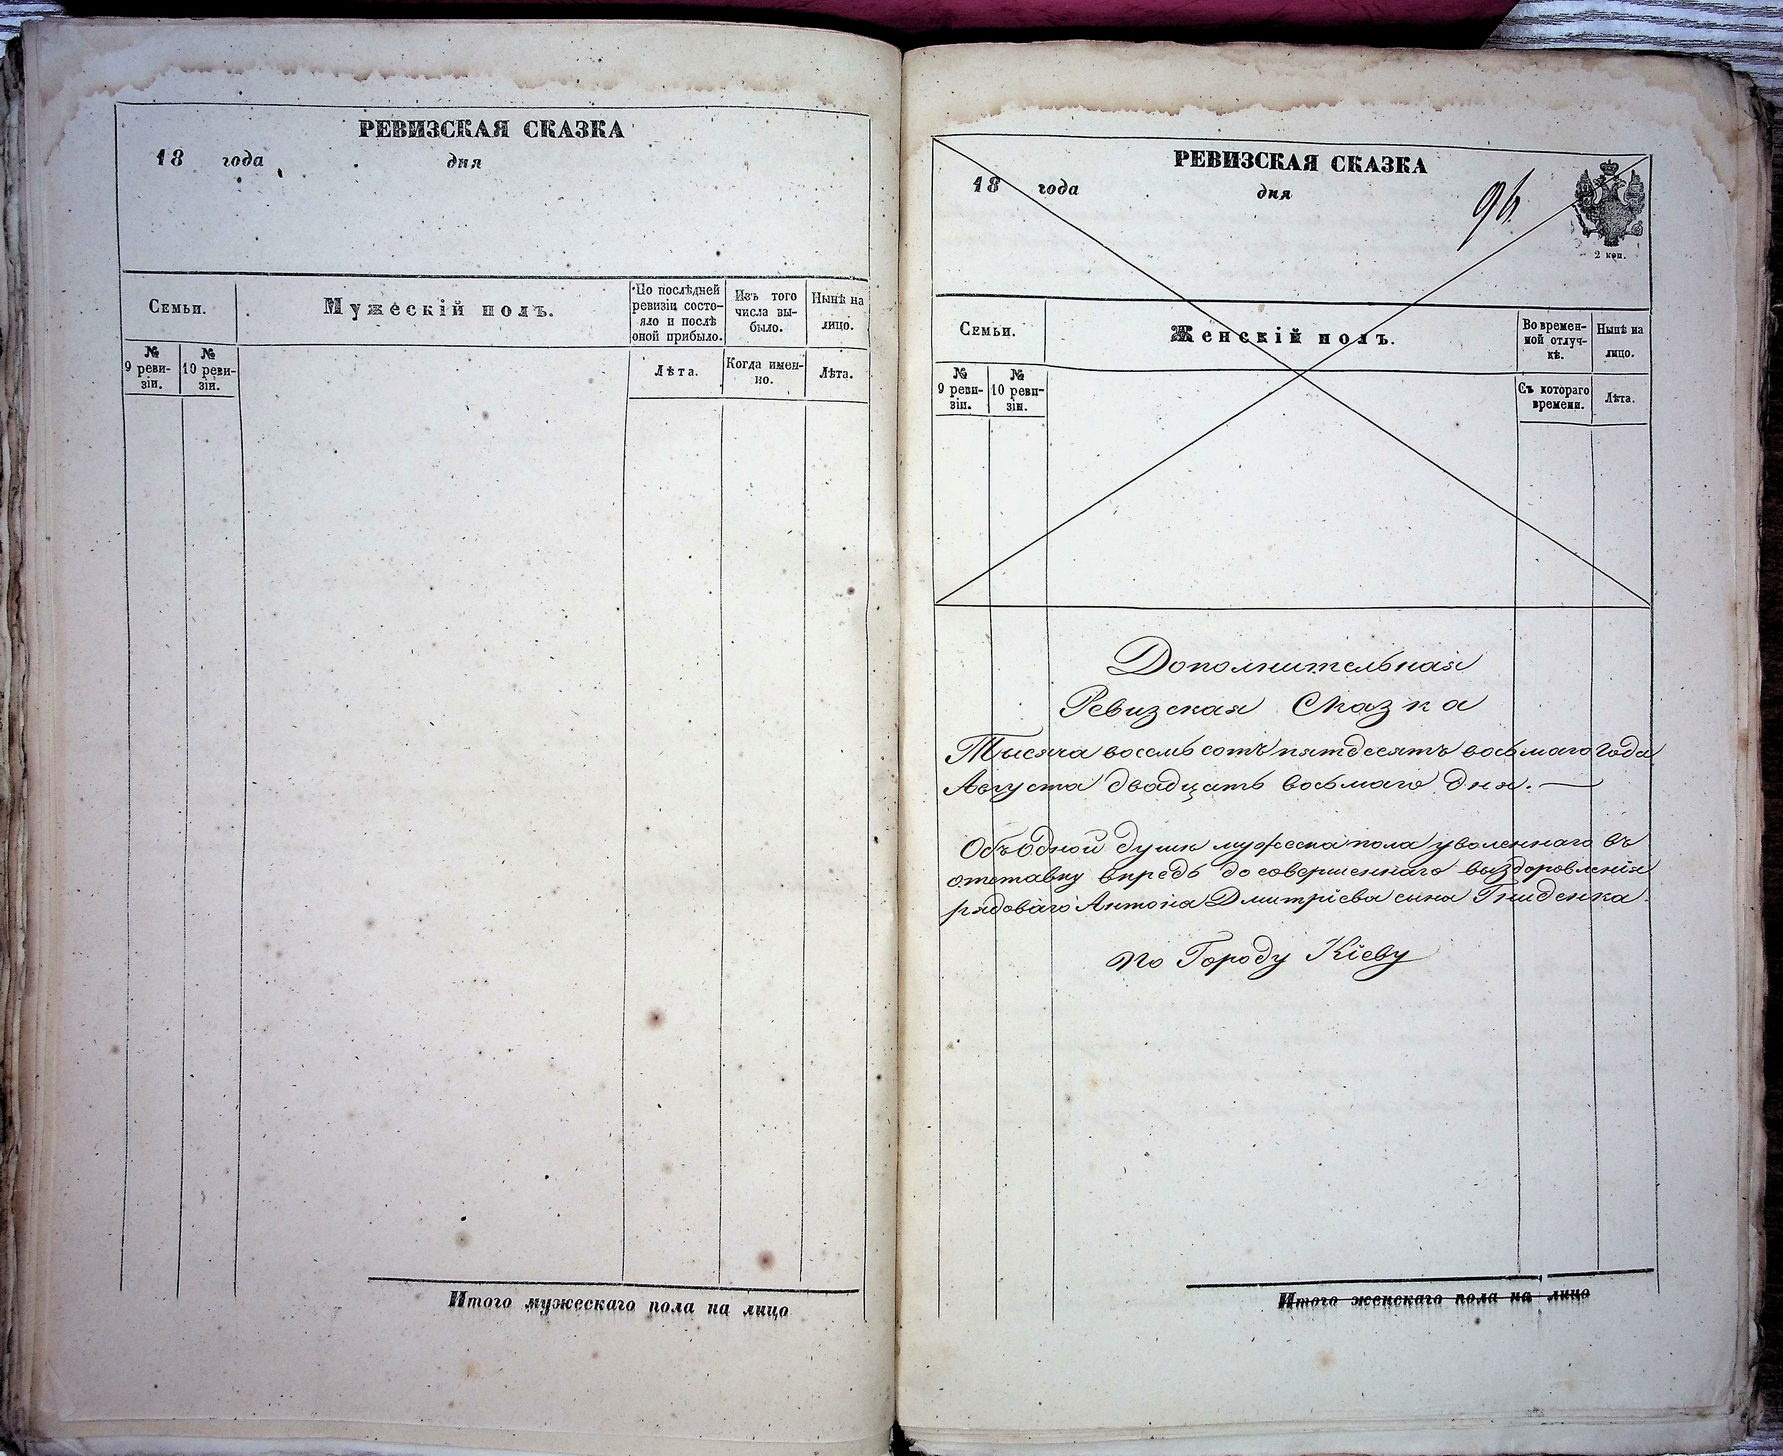 РЕВИЗСКАЯ СКАЗКА
18 года дня
Семьи.
Мужескій полъ.
По послѣдней ревизіи состо-
яло и послѣ
оной прибыло.
Изъ того
числа вы-
было.
Нынѣ на
лицо.
№
9 реви-
зіи.
№
10 реви-
зіи.
Лѣта.
Когда имен-
но.
Лѣта.
Итого мужескаго пола на лицо
РЕВИЗСКАЯ СКАЗКА
18 года дня
96.
2 коп.
Семьи.
Женскій полъ.
Во времен-
ной отлуч-
кѣ.
Нынѣ на
лицо.
№
9 реви-
зіи.
№
10 реви-
зіи.
Съ котораго
времени.
Лѣта.
Дополнительная
Ревизская Сказка
Тысяча восемь сотъ пятдесятъ восьмаго года
Августа двадцать восьмаго дня. —
Объ одной души мужеска пола уволеннаго въ
отставку впредь до совершеннаго выздоровленія
рядоваго Антона Дмитріева сына Гниденка.
по Городу Кіеву
Итого женскаго пола на лицо